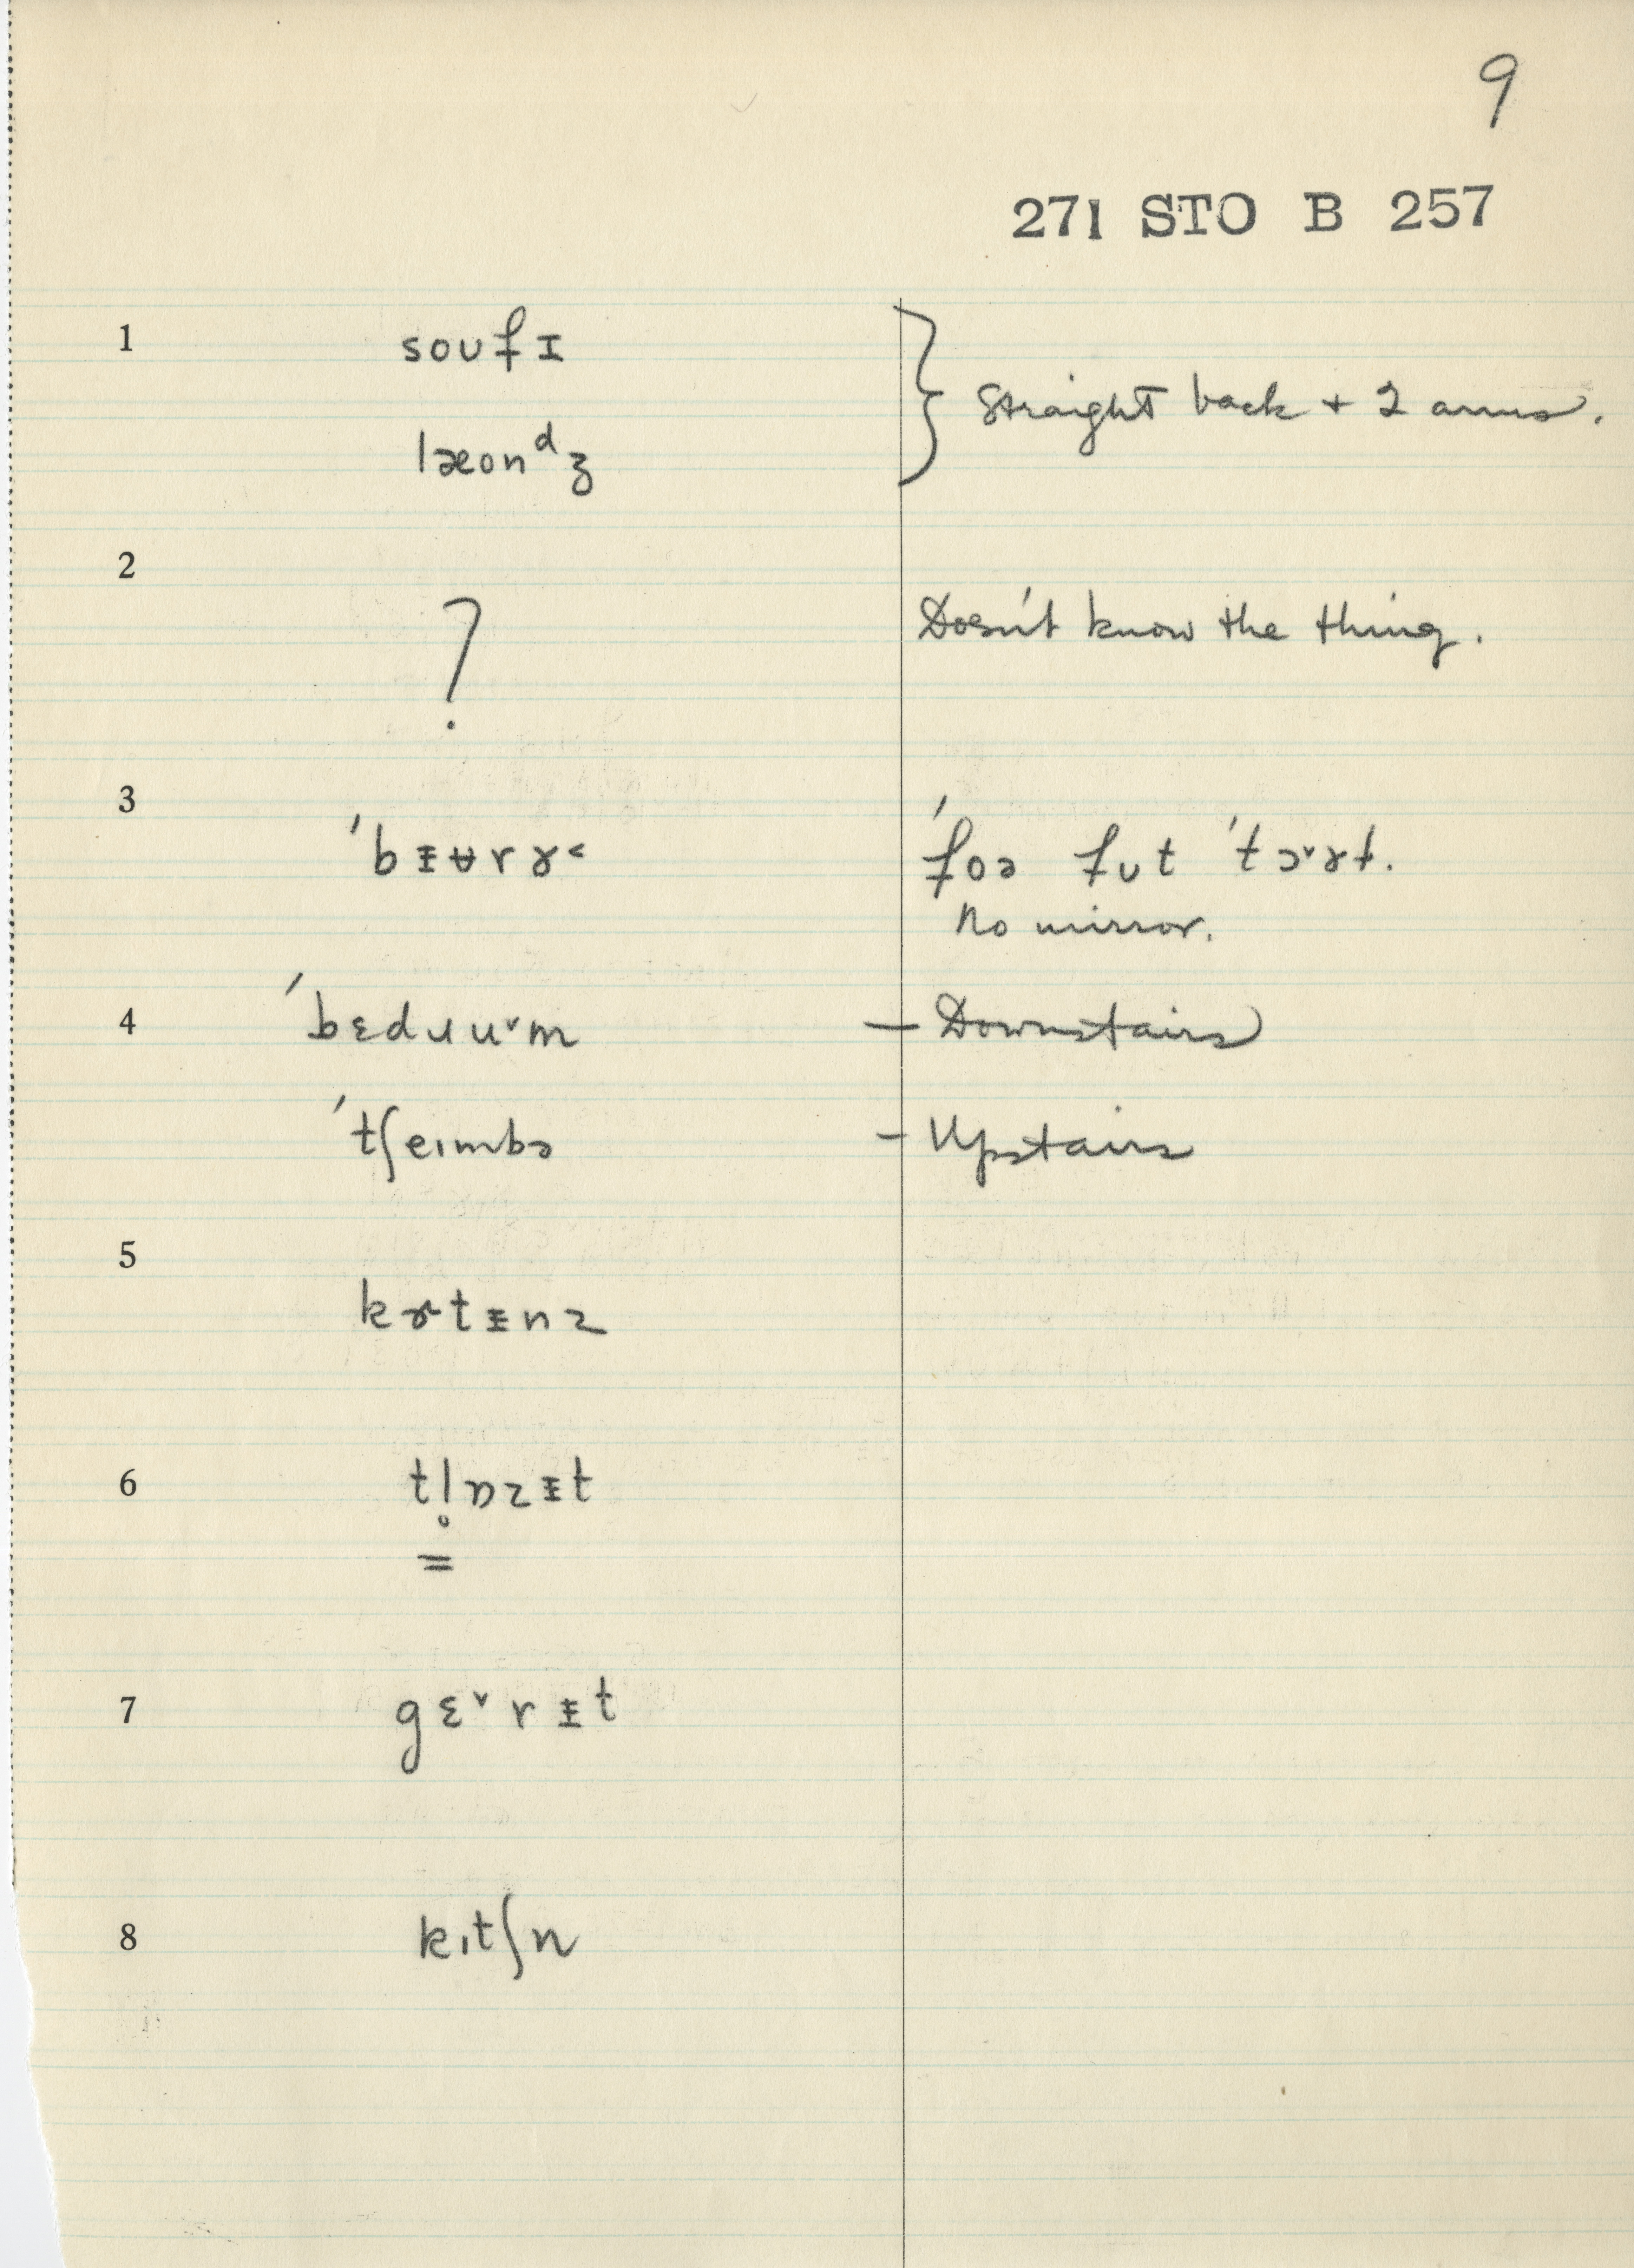 9
271 STO B 257
1 soufɪ
læonᵈʒ
Straight back + 2 arms.
2 ?
Doesn't know the thing.
3 ˈbᵻʉrɤ˂
ˈfoə fut ˈtɔ˅ɤt.
No mirror.
4 ˈbɛdɹu˅m – Downstairs
ˈtʃeɪmbə – Upstairs
5 kɤtᵻnz
6 tl̥ɒzᵻt
=
7 gɛ˅rᵻt
8 kɪtʃn